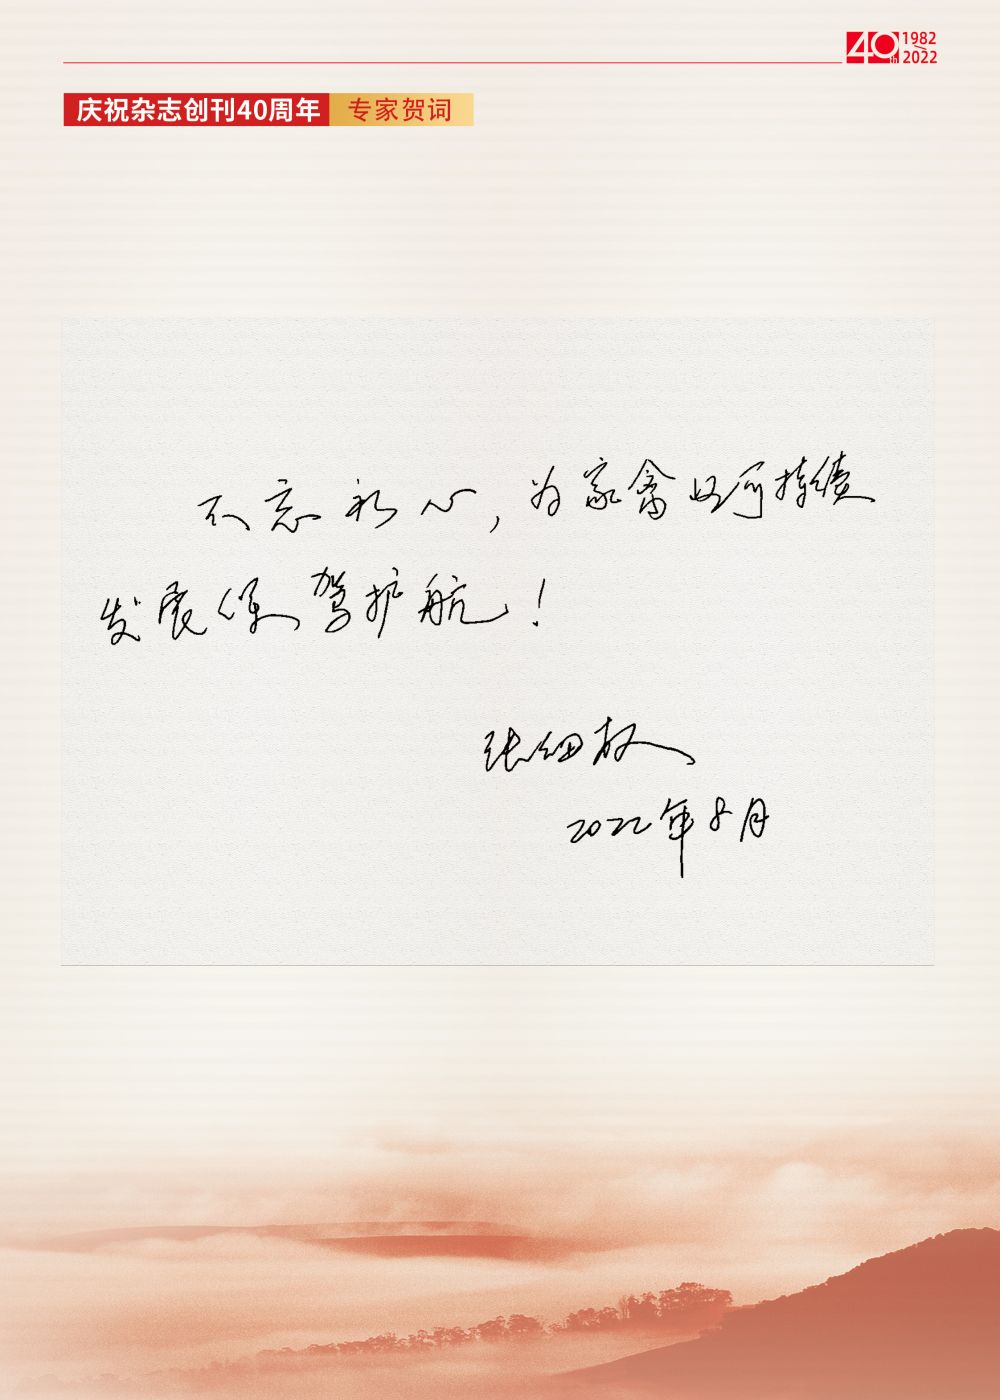 40th 1982
2022
庆祝杂志创刊40周年 专家贺词
不忘初心,为家禽业可持续
发展保驾护航!
张细权
2022年8月